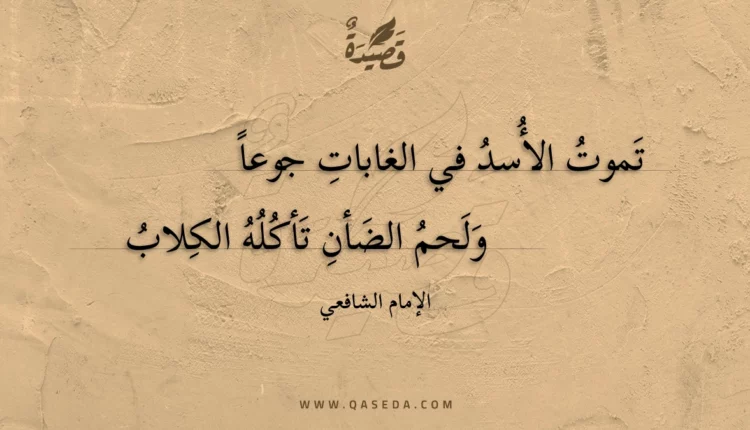 قَصِيْدَةٌ
تَموتُ الأُسدُ في الغاباتِ جوعاً
وَلَحمُ الضَأنِ تَأكُلُهُ الكِلابُ
الإمام الشافعي
WWW.QASEDA.COM